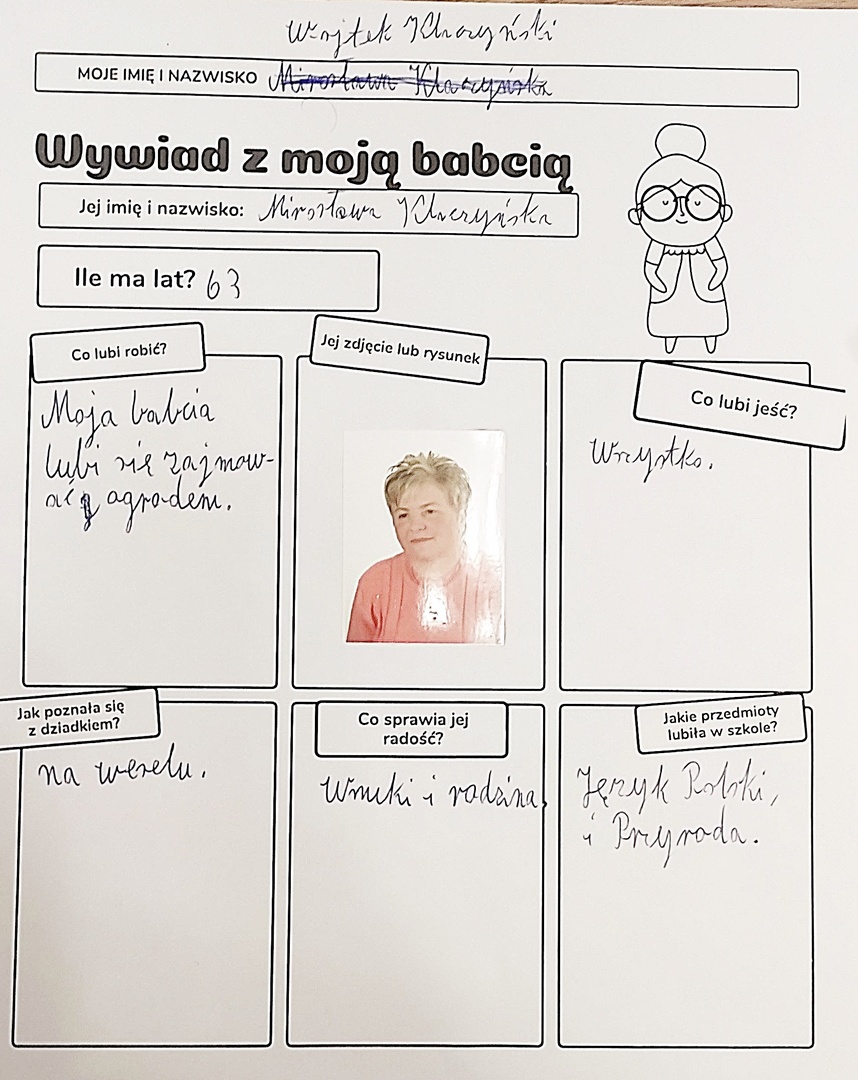 Wojtek Kluczyński
MOJE IMIĘ I NAZWISKO
Wywiad z moją babcią
Jej imię i nazwisko: Mirosława Kluczyńska
Ile ma lat? 63
Co lubi robić?
Moja babcia
lubi się zajmow-
ać agrodem.
Jej zdjęcie lub rysunek
Co lubi jeść?
Wszystko.
Jak poznała się
z dziadkiem?
na weselu.
Co sprawia jej
radość?
Wnuki i rodzina.
Jakie przedmioty
lubiła w szkole?
Język Polski,
i Przyroda.